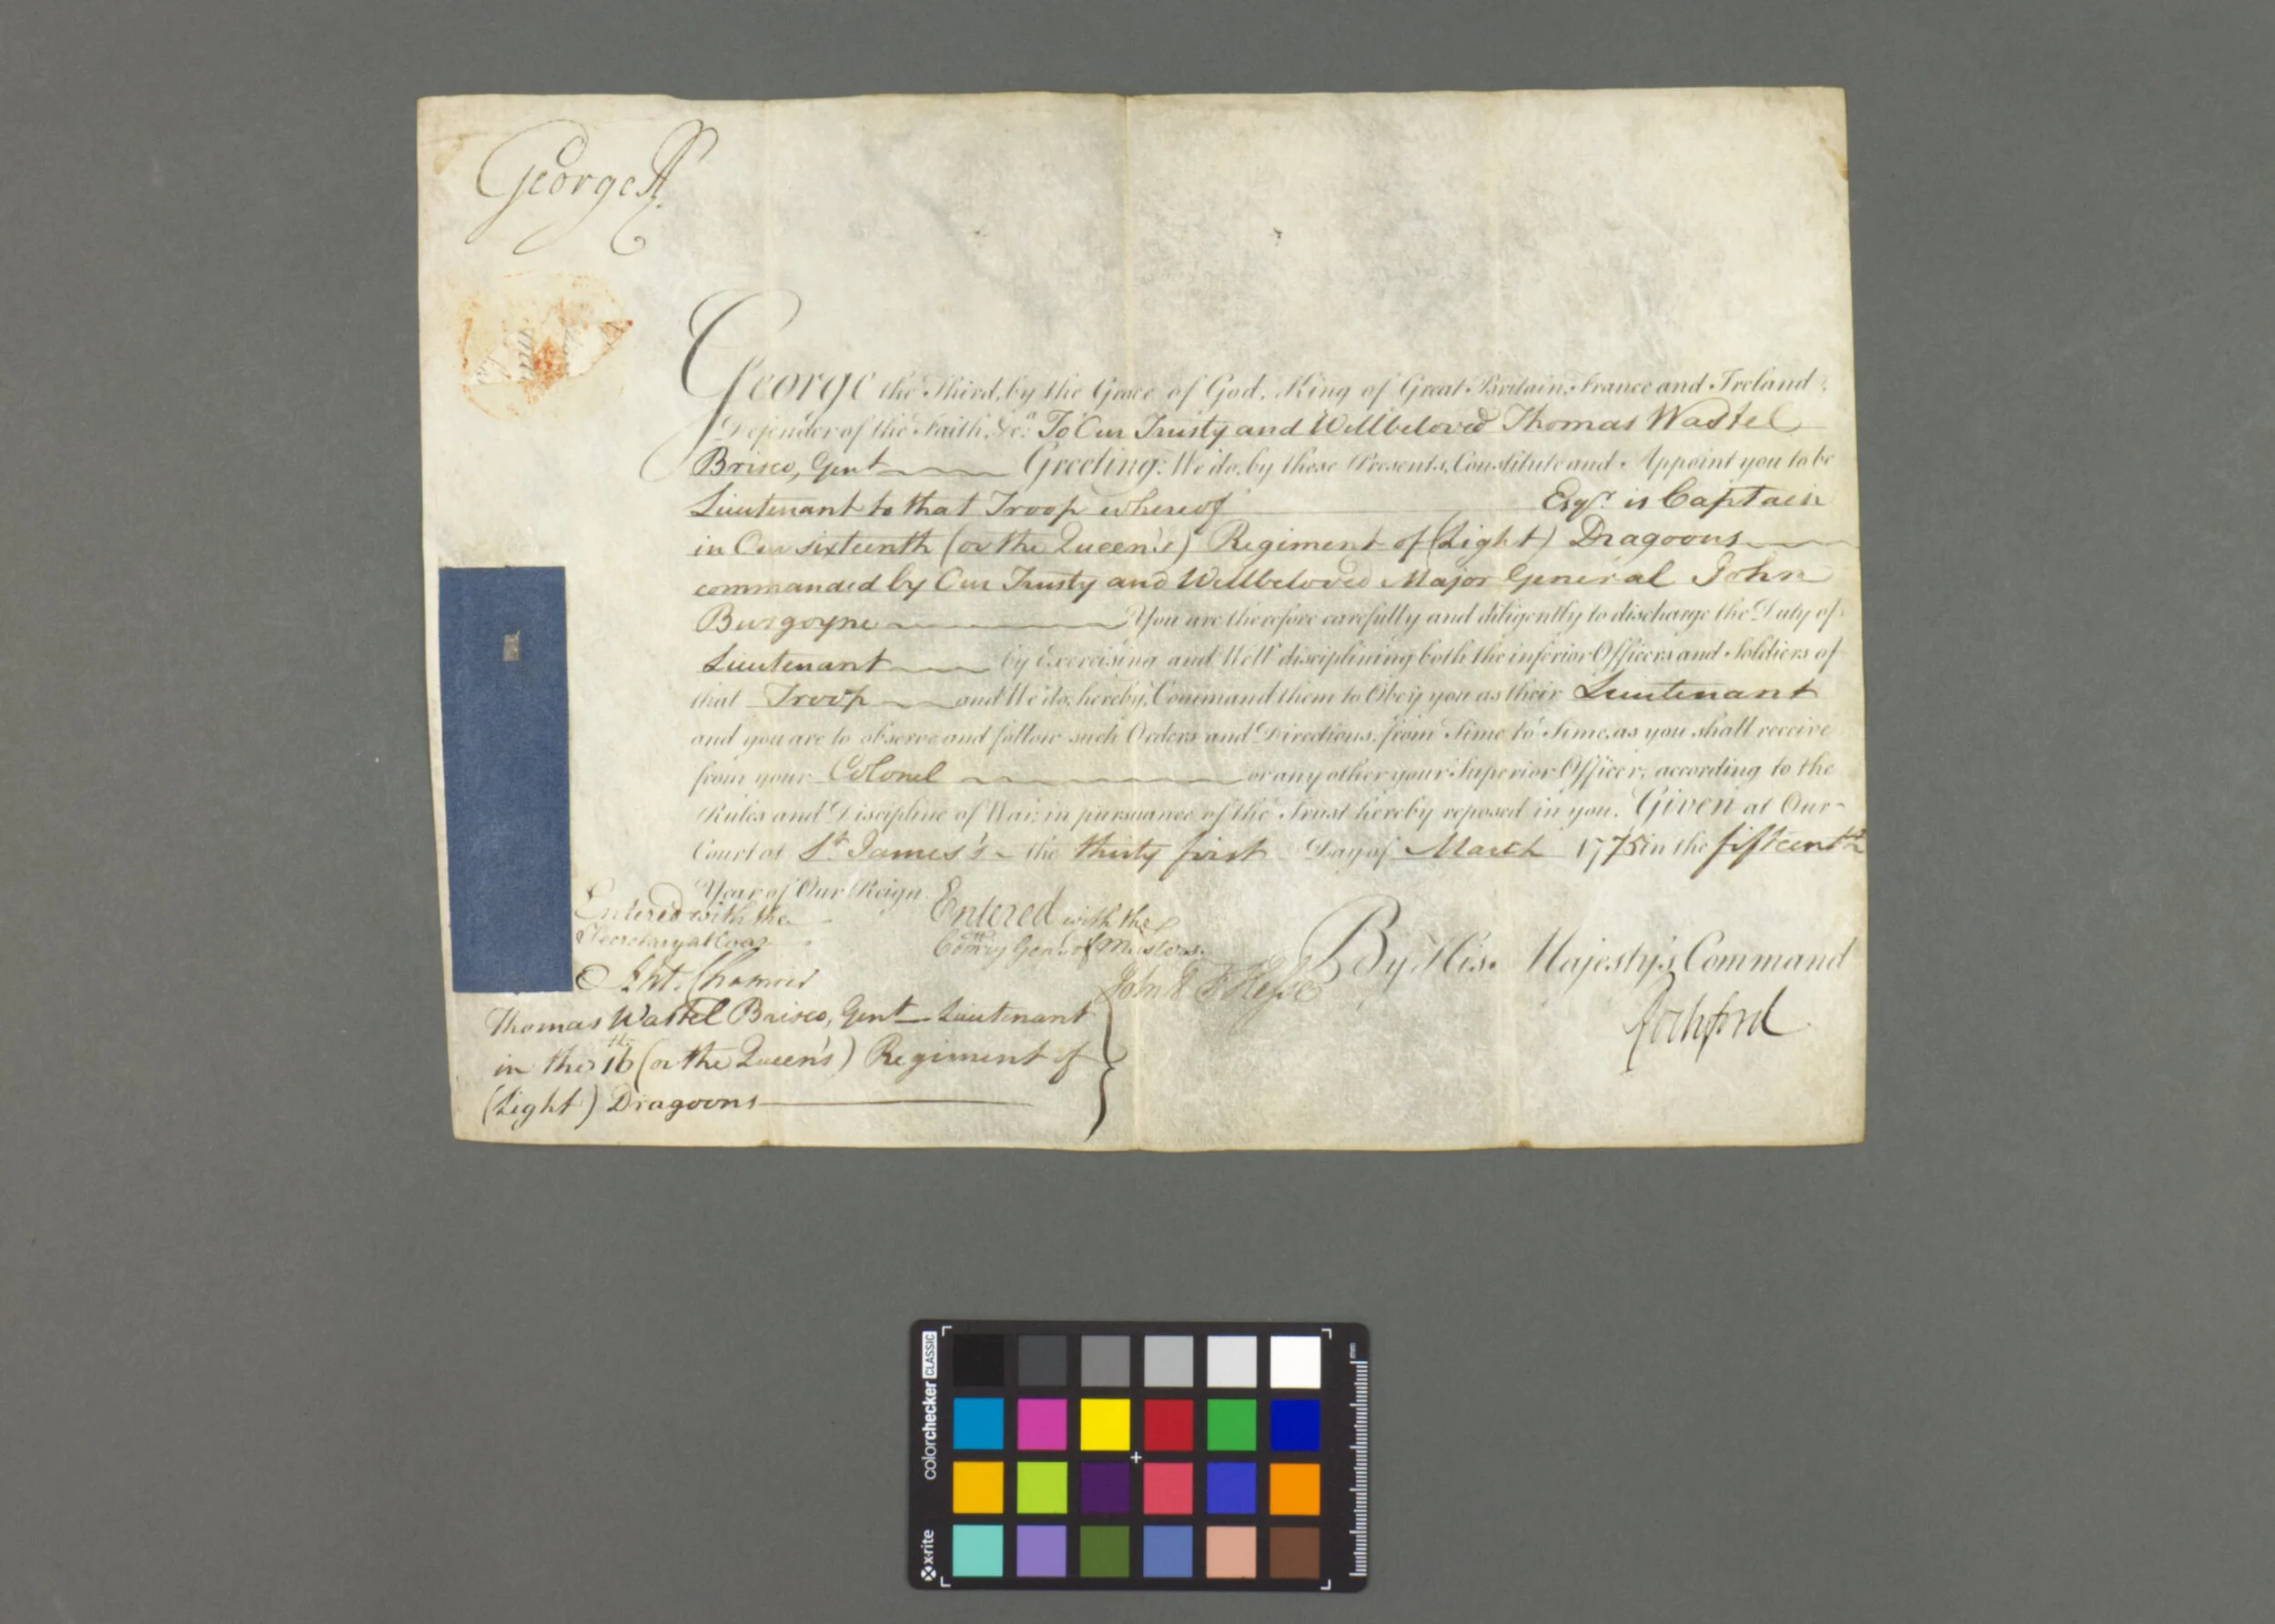 George R
George the Third, by the Grace of God, King of Great Britain, France and Ireland,
Defender of the Faith, &c.a To Our Trusty and Wellbeloved Thomas Wastel
Brisco, Gent Greeting: We do, by these Presents, Constitute and Appoint you to be
Lieutenant to that Troop whereof Esqr. is Captain
in Our sixteenth (or the Queen's) Regiment of (Light) Dragoons
commanded by Our Trusty and Wellbeloved Major General John
Burgoyne You are therefore carefully and diligently to discharge the Duty of
Lieutenant by Exercising and Well disciplining both the inferior Officers and Soldiers of
that Troop and We do, hereby, Command them to Obey you as their Lieutenant
and you are to observe and follow such Orders and Directions, from Time to Time, as you shall receive
from your Colonel or any other your Superior Officer, according to the
Rules and Discipline of War, in pursuance of the Trust hereby reposed in you. Given at Our
Court at St. James's the thirty first Day of March 1775 in the fifteenth
Year of Our Reign.
Entered with the
Secretary at War
Entered with the
Comry Genl. of Musters
By His Majesty's Command
Rochford
Thomas Wastel Brisco, Gent Lieutenant
in the 16th (or the Queen's) Regiment of
(Light) Dragoons
colorchecker CLASSIC
x-rite
mm